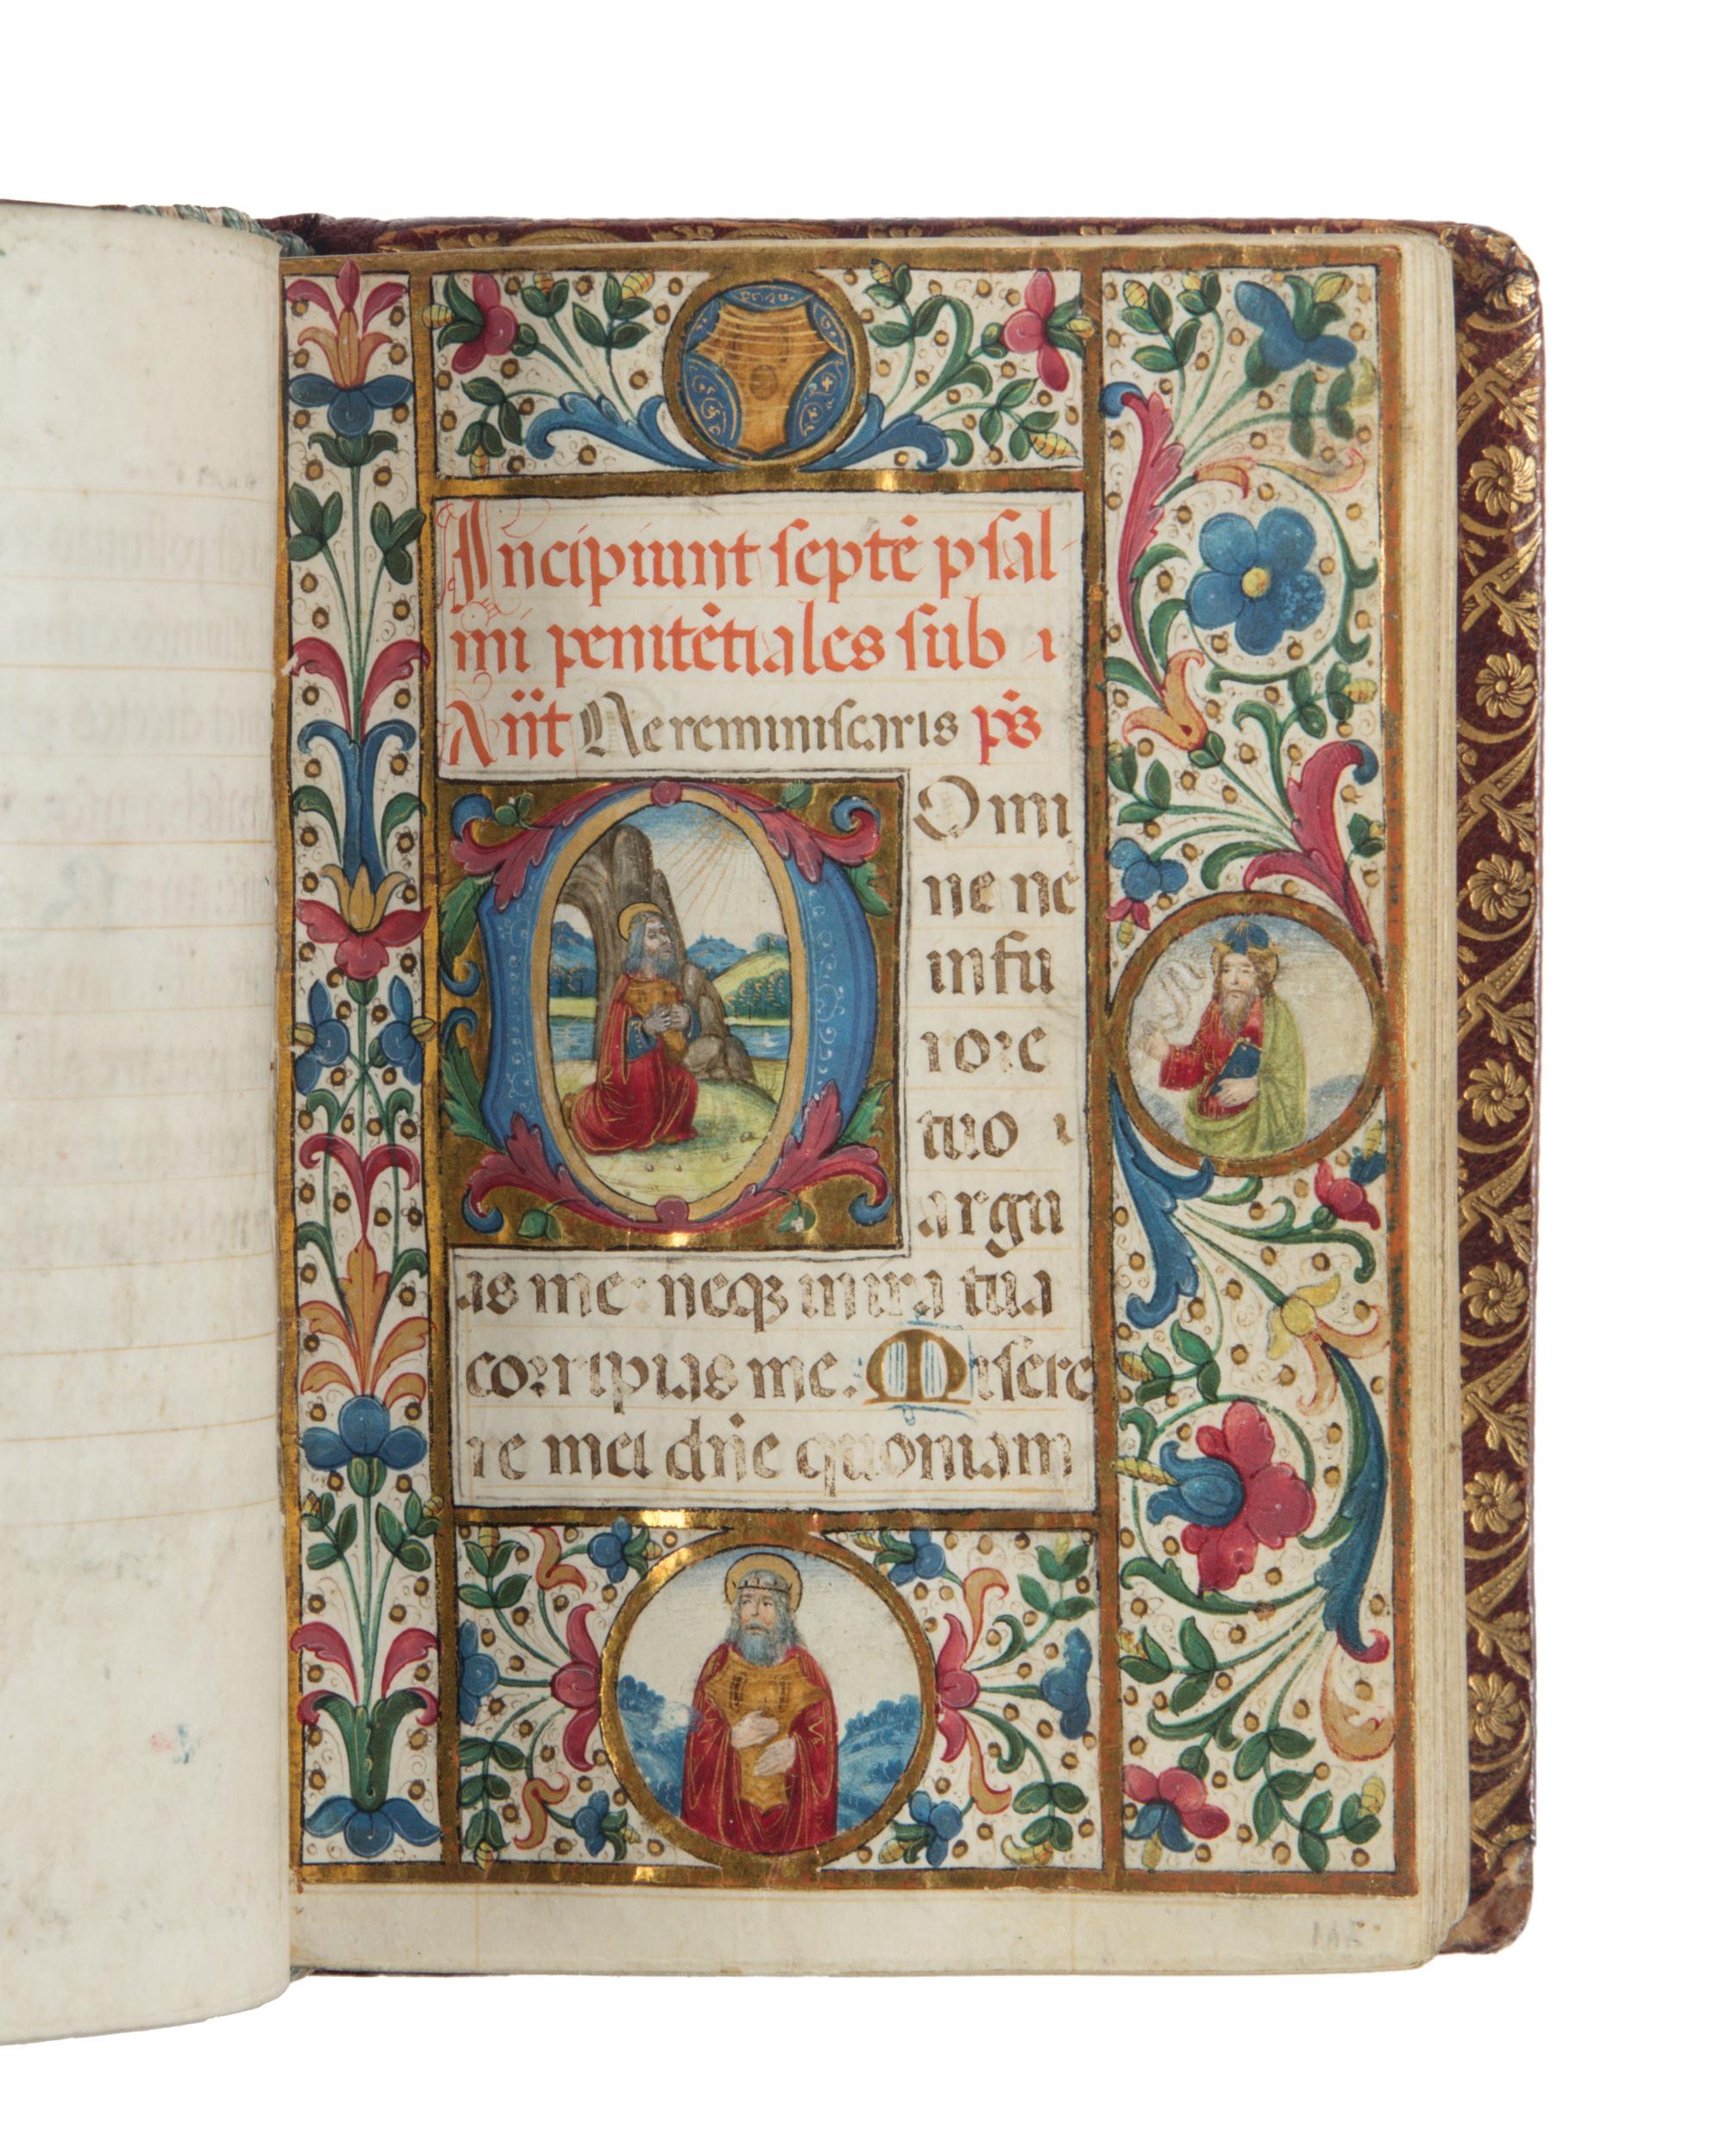 Incipiunt septē psal
mi penitētiales sub
Añt Ne reminiscaris ps̄
DOmi
ne ne
in fu
rore
tuo
argu
as me: neqꝫ in ira tua
corripias me. Misere
re mei dñe quoniam